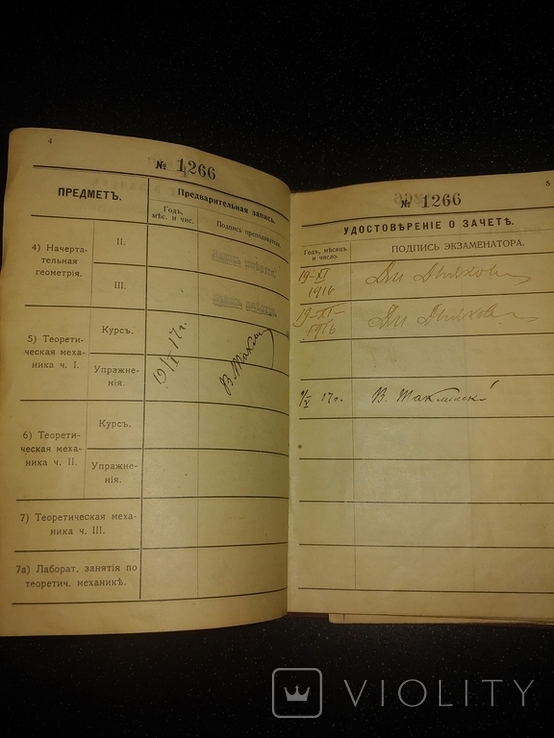 4
№ 1266
ПРЕДМЕТЪ.
Предварительная запись.
Годъ, мѣс. и чис.
Подпись преподавателя.
4) Начерта-
тельная
геометрія.
II.
III.
5) Теорети-
ческая меха-
ника ч. I.
Курсъ.
Упражне-
нія.
19/X 17 г.
6) Теорети-
ческая меха-
ника ч. II.
Курсъ.
Упражне-
нія.
7) Теоретическая меха-
ника ч. III.
7а) Лаборат. занятія по
теоретич. механикѣ.
5
№ 1266
УДОСТОВѢРЕНІЕ О ЗАЧЕТѢ.
Годъ, мѣсяцъ
и число.
ПОДПИСЬ ЭКЗАМЕНАТОРА.
19-XI
1916
19-XI-
1916
17 г.
VIOLITY